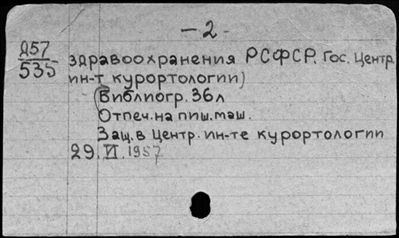 — 2 —
Д57
535
здравоохранения РСФСР. Гос. Центр.
ин-т курортологии)
(Библиогр. 36л
Отпеч. на пиш. маш.
Защ. в Центр. ин-те курортологии
29. VI. 1957